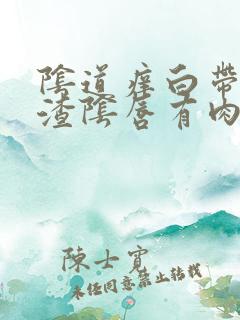 陰道癢白帶
渣陰唇有肉
陳士寶
未經同意禁止轉載